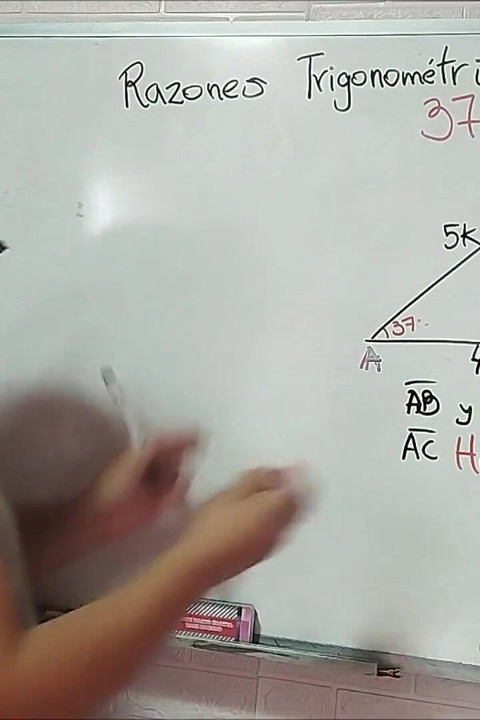 Razones Trigonométri
37
5K
37°
A
4
AB y
AC H